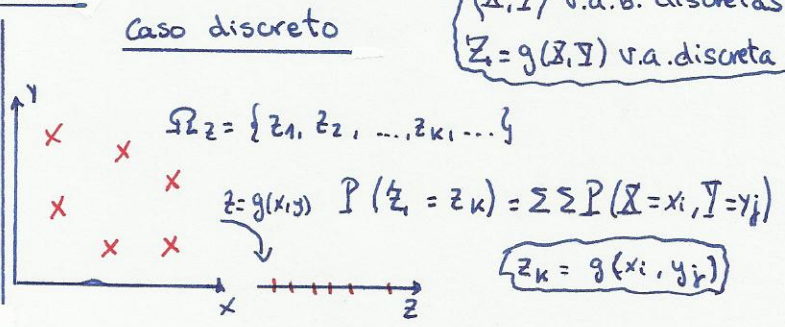 Caso discreto
(X,Y) v.a.b. discretas
Z = g(X,Y) v.a. discreta
Y
Ω_Z = { z₁, z₂, ..., z_k, ... }
z = g(x,y) P(Z = z_k) = ΣΣ P(X = x_i, Y = y_j)
z_k = g(x_i, y_j)
X
Z